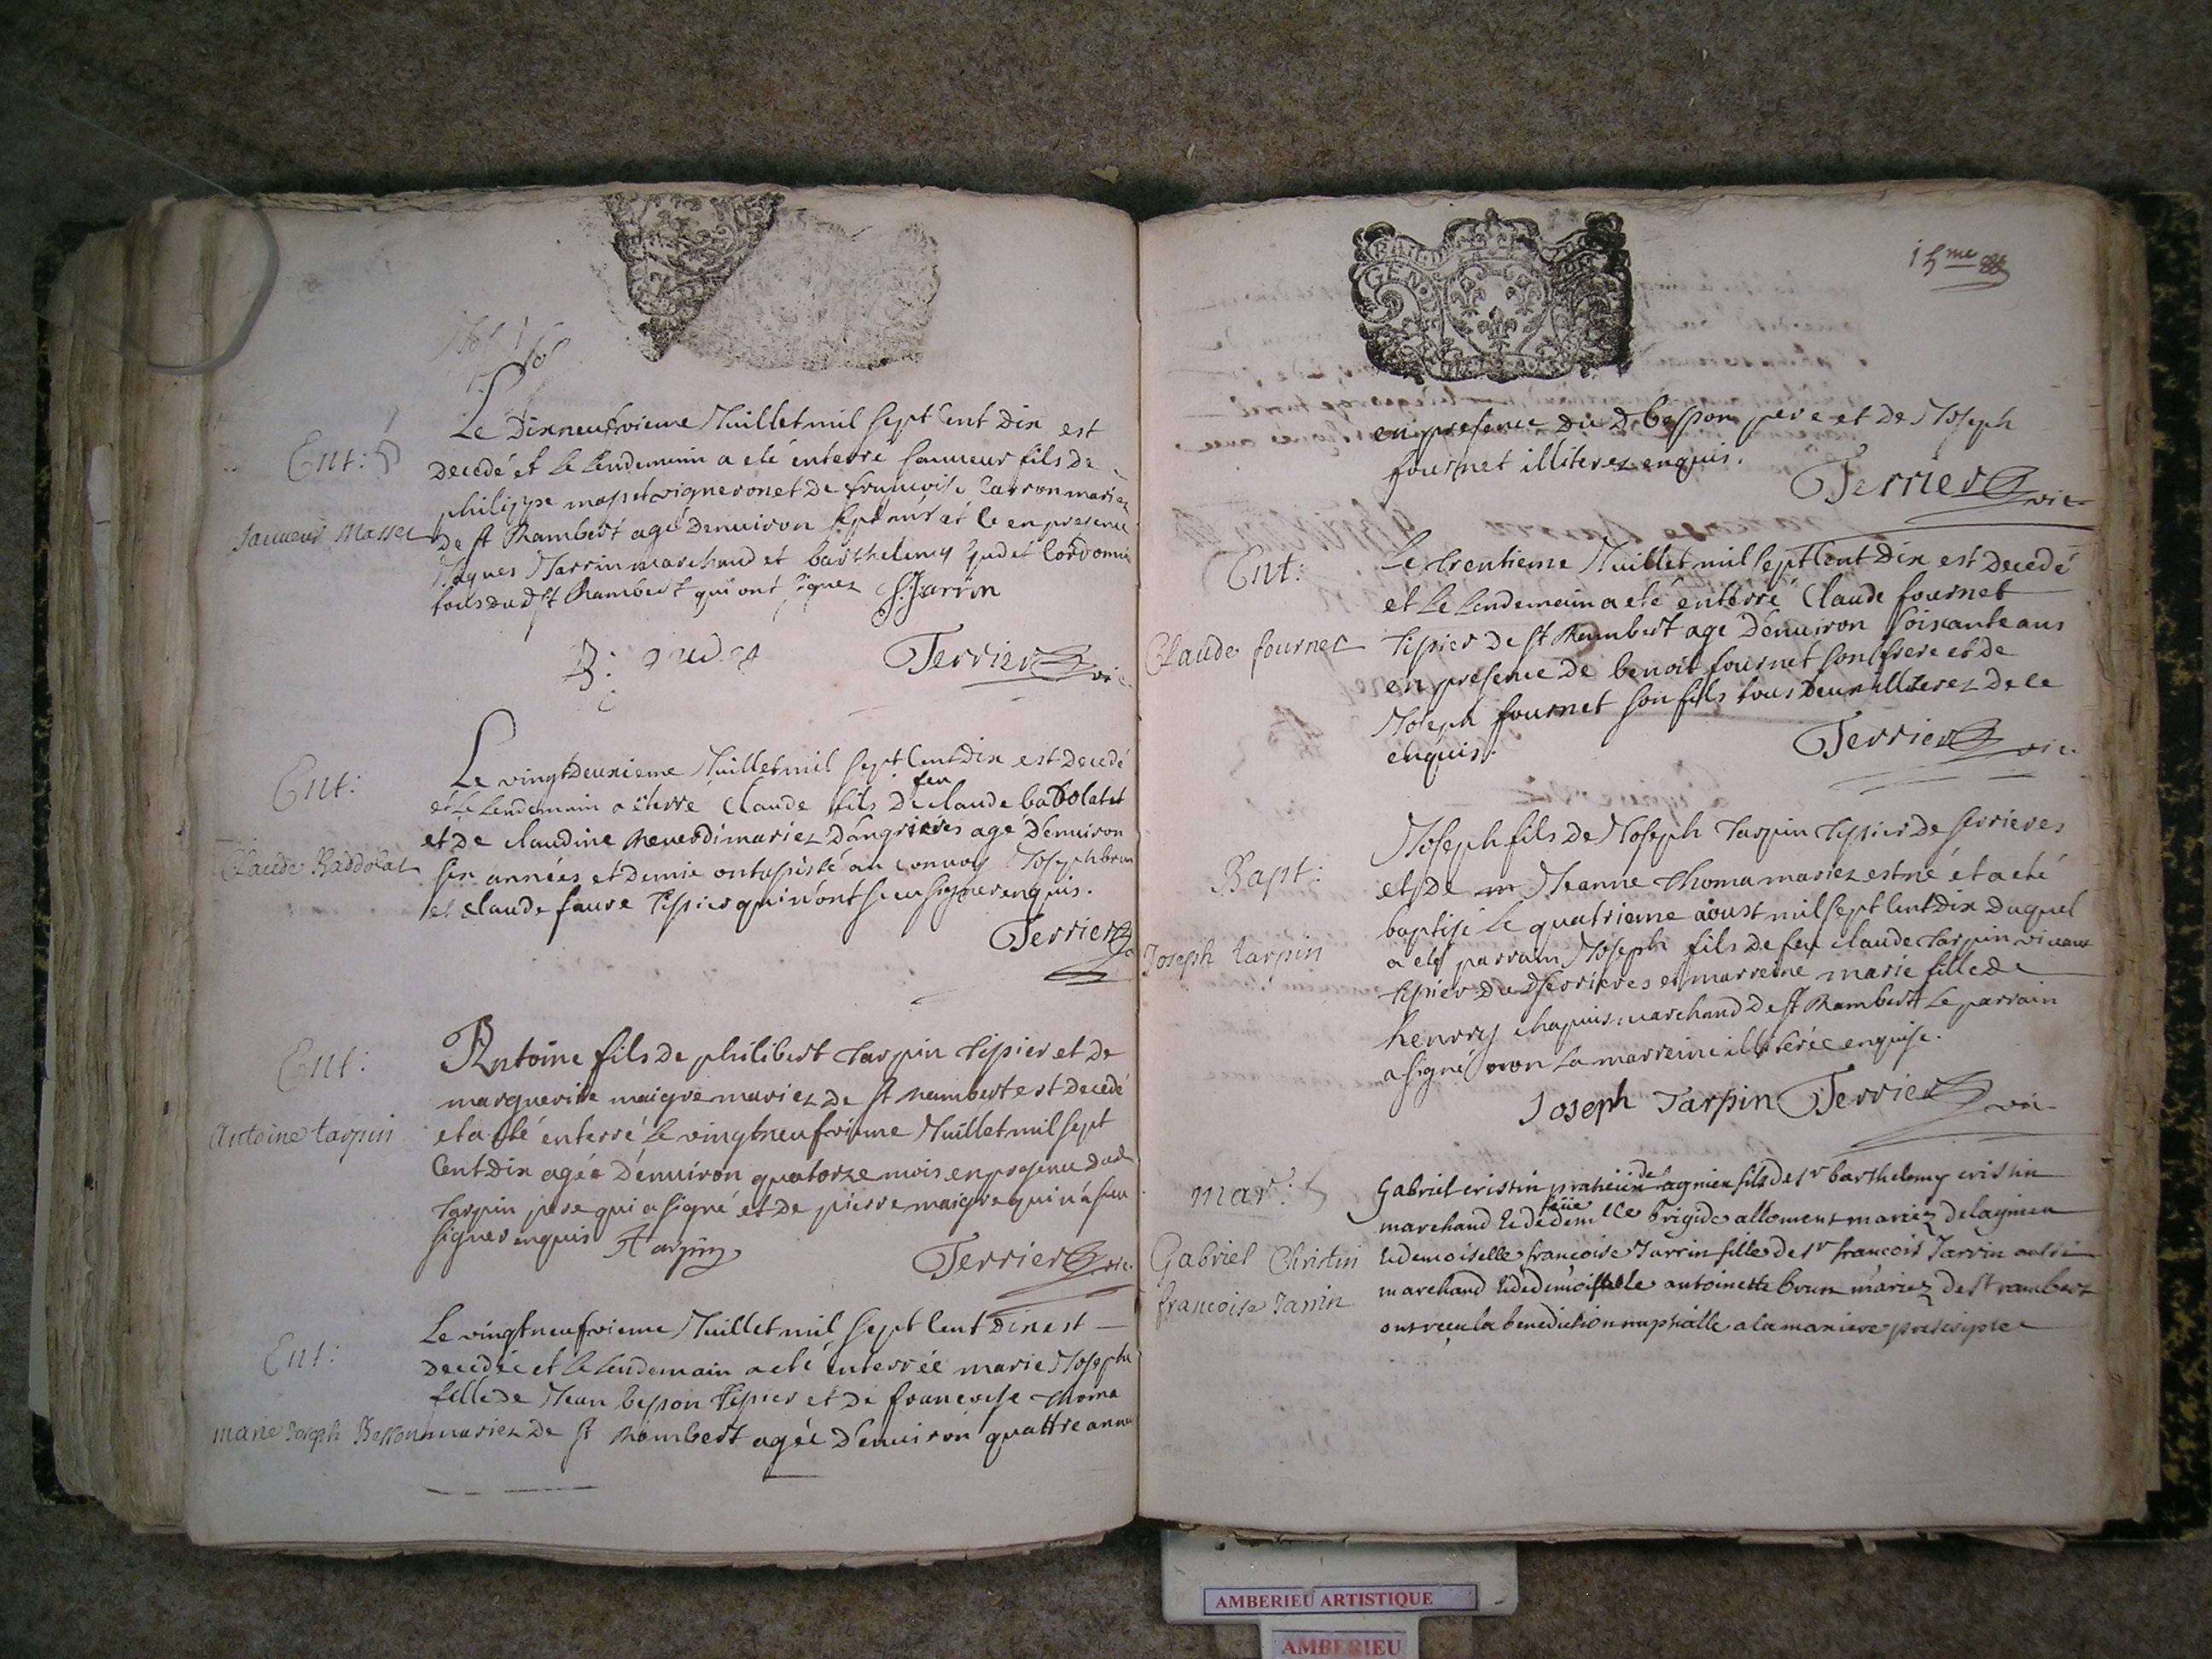 Ent:
Sauveur Masset
Le Dixneufvieme Juillet mil sept Cent Dix est
decedé et le lendemain a eté enterré sauveur fils de
philippe masset vigneron et de francoise Carron mariez
de st Rambert agé denuiron sept en presence
Jaques Jarrin marchand et barthelemy Cordonnier
tous dud st Rambert qui ont signez J Jarrin
Terrier vic
Ent:
Claude Baddolat
Le vingtdeuxieme Juillet mil sept Cent Dix est decedé
et le lendemain a eterré Claude fils de feu claude badolat et
et de claudine mariez Dangrieres agé denuiron
six années et demie ont assisté au convoy Joseph brun
et claude faure tissier qui n'ont sceu signer enquis.
Terrier
Ent:
Antoine tarpin
Antoine fils de philibert tarpin tissier et de
marguerite maigre mariez de st rambert est decedé
et a eté enterré le vingtneufvieme Juillet mil sept
Cent Dix agée denuiron quatorze mois en presence dud
tarpin pere qui a signé et de pierre maigre qui n'a sceu
signer enquis Tarpin
Terrier vic.
Ent:
marie Joseph Besson
Le vingtneufvieme Juillet mil sept Cent Dix est
decedée et le lendemain a eté enterrée marie Joseph
fille de Jean besson tissier et de francoise thoma
mariez de st Rambert agée denuiron quattre anné
15me
en presence du d besson pere et de Joseph
fournet illiterez enquis.
Terrier vic
Ent:
Claude fournet
Le trentieme Juillet mil sept Cent Dix est decedé
et le lendemain a eté enterré Claude fournet
tissier de st Rambert age denuiron soixante ans
en presence de benoit fournet son frere et de
Joseph fournet son fils tous deux illiterez de ce
enquis.
Terrier vic.
Bapt:
Joseph tarpin
Joseph fils de Joseph tarpin tissier de serrieres
et de Jeanne thoma mariez est né et a eté
baptisé le quatrieme aoust mil sept Cent Dix duquel
a eté parrain Joseph fils de feu claude tarpin vivant
tissier dud serrieres et marreine marie fille de
henrry chapuis marchand de st Rambert Le parrain
a signé non la marreine illiterée enquise.
Joseph Tarpin Terrier vic
mar:
Gabriel Christin
francoise Jarrin
Gabriel cristin praticien de lagnieu fils de sr barthelemy cristin
marchand & de feüe demlle brigide allement mariez de lagnieu
& demoiselle françoise Jarrin fille de sr françois Jarrin aussi
marchand & de demoiselle antoinette brun mariez de st rambert
ont reçu la benediction nuptialle a la maniere prescripte
AMBERIEU ARTISTIQUE
AMBERIEU